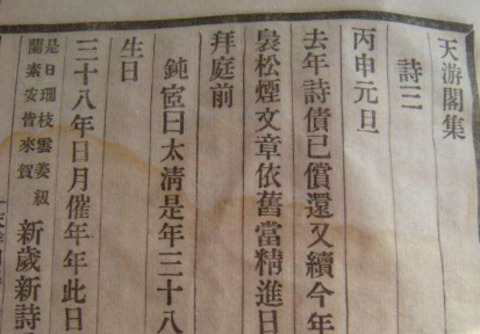 天游閣集
詩三
丙申元旦
去年詩債已償還又續今年
裊松煙文章依舊當精進日
拜庭前
鈍宧曰太淸是年三十八
生日
三十八年日月催年年此日
是日珊枝雲姜級
蘭素安皆來賀
新歲新詩